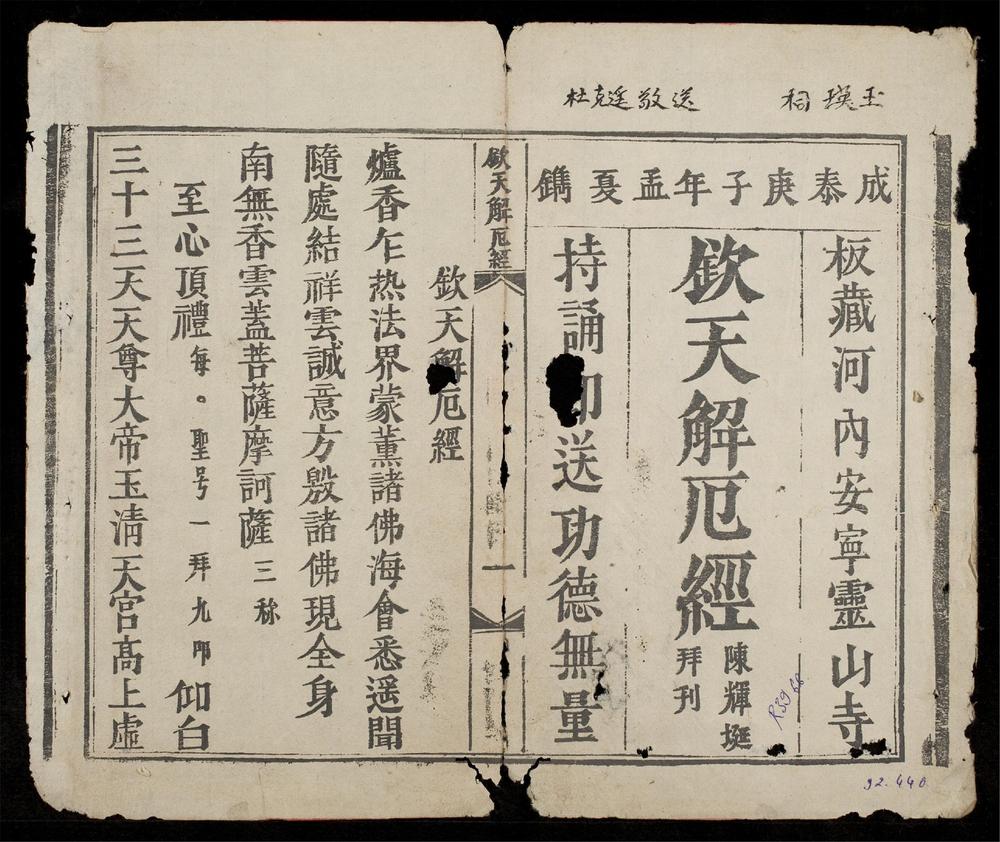 玉瑛祠
送敬遥克杜
成泰庚子年孟夏鐫
板藏河內安寧靈山寺
欽天解厄經
陳輝挻
拜刊
持誦即送功德無量
欽天解厄經
一
欽天解厄經
爐香乍热法界蒙薰諸佛海會悉遥聞
隨處結祥雲誠意方殷諸佛現全身
南無香雲蓋菩薩摩訶薩三称
至心頂禮每。聖号一拜九叩仰白
三十三天天尊大帝玉清天宮髙上虛
R3966
92.440